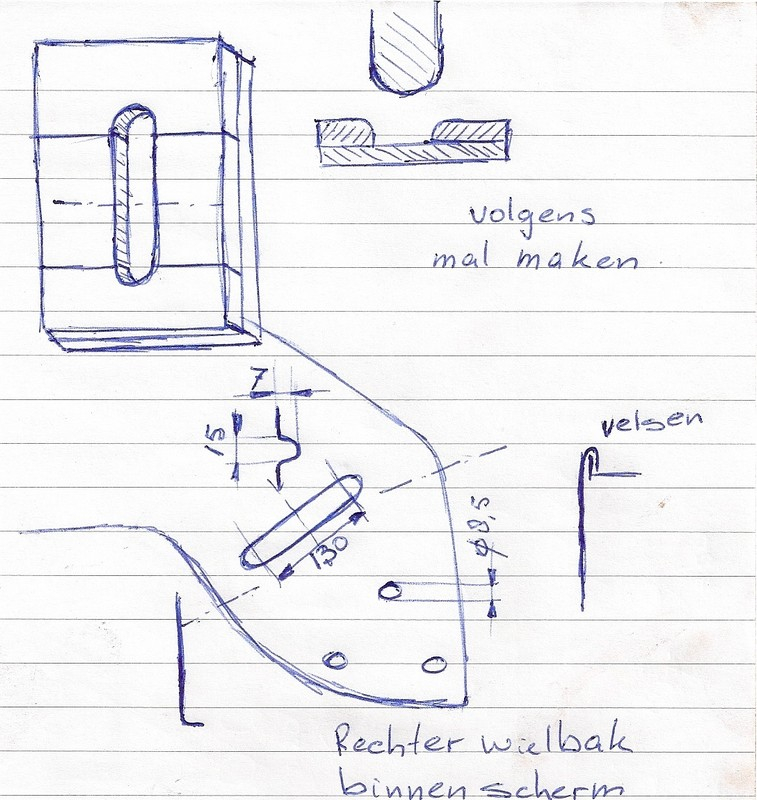 volgens
mal maken
7
15
velsen
130
ϕ8,5
Rechter wielbak
binnenscherm